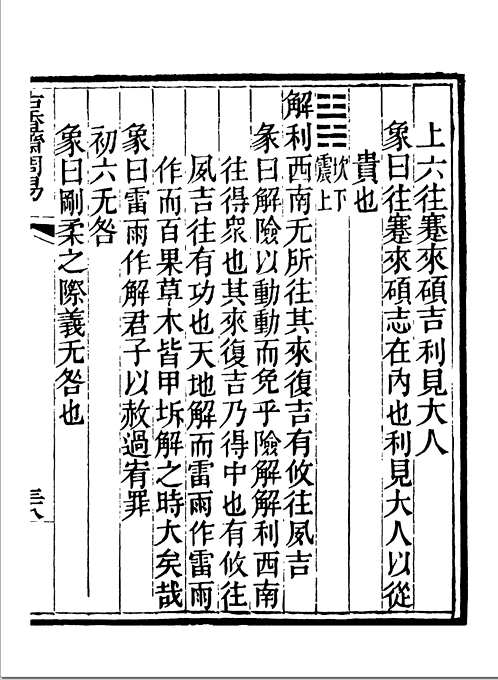 上六往蹇來碩吉利見大人
象曰往蹇來碩志在內也利見大人以從
貴也
䷧坎下震上
解利西南无所往其來復吉有攸往夙吉
彖曰解險以動動而免乎險解解利西南
往得衆也其來復吉乃得中也有攸往
夙吉往有功也天地解而雷雨作雷雨
作而百果草木皆甲坼解之時大矣哉
象曰雷雨作解君子以赦過宥罪
初六无咎
象曰剛柔之際義无咎也
古香齋周易